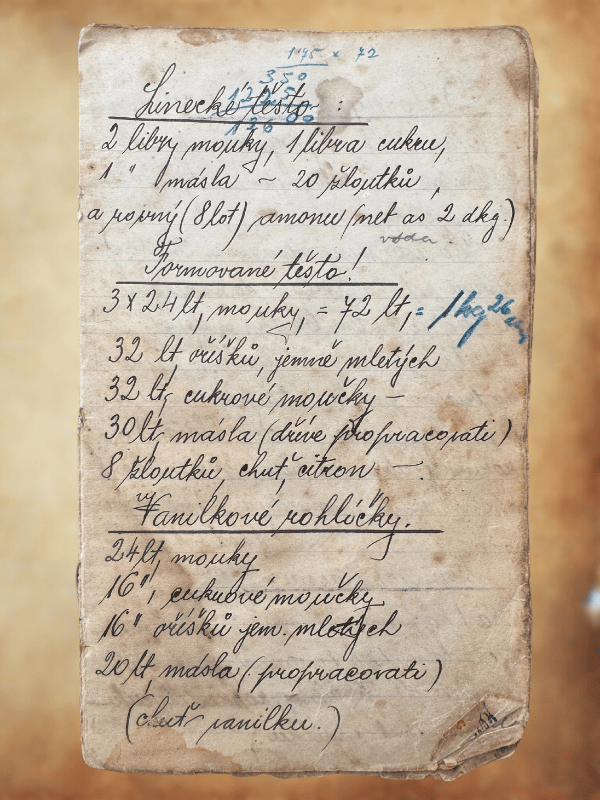 175 x 72
350
1225
12600
Linecké těsto :
2 libry mouky, 1 libra cukru,
1 " másla – 20 žloutků,
a rovný (8 lot) amonu (net as 2 dkg.)
voda
Formované těsto!
3 x 24 lt, mouky, = 72 lt, = 1 kg 26
32 lt, oříšků, jemně mletých
32 lt, cukrové moučky –
30 lt, másla (dříve propracovati)
8 žloutků, chuť, citron –.
Vanilkové rohlíčky.
24 lt, mouky
16 ", cukrové moučky
16 " oříšků jem. mletých
20 lt másla (propracovati)
(chuť vanilku.)